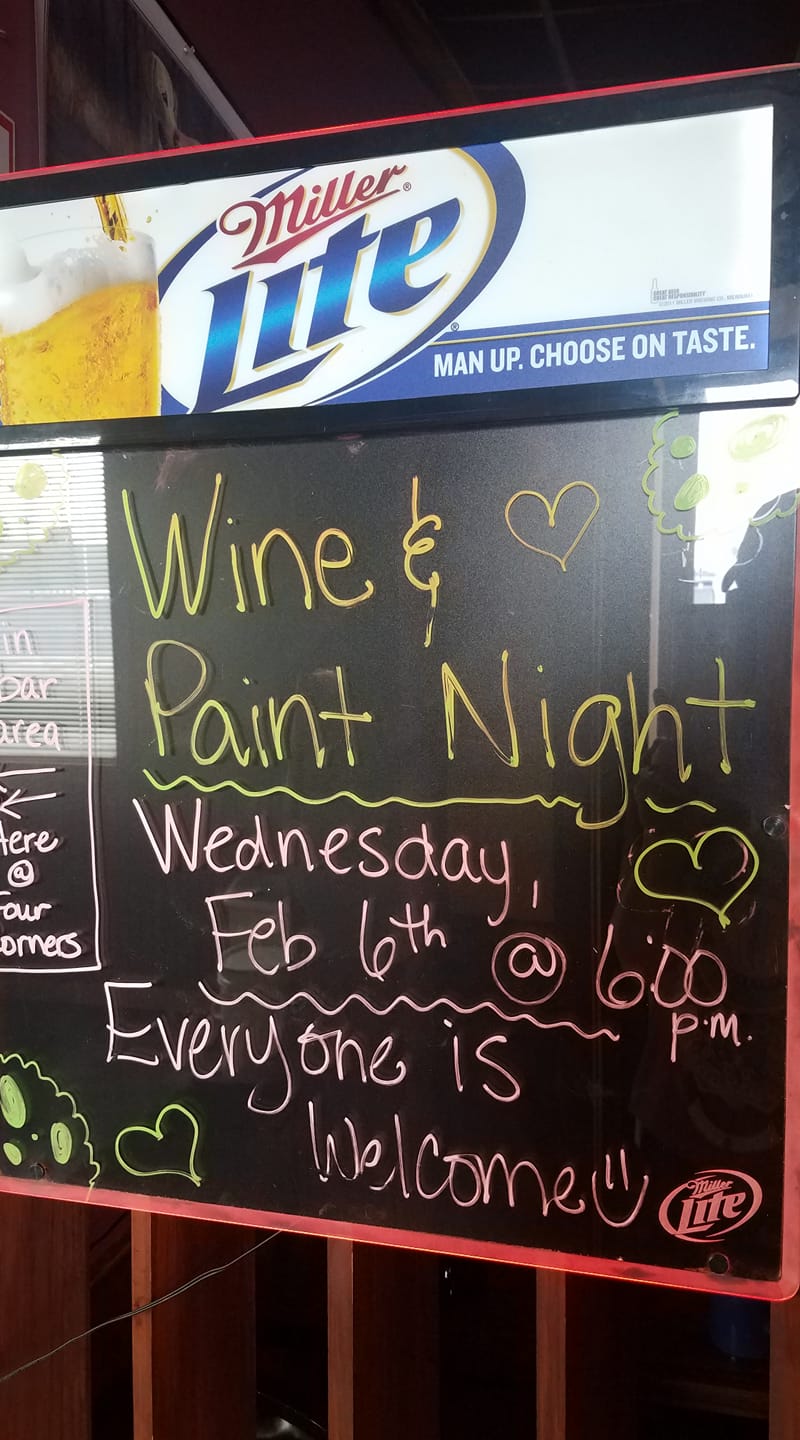 Miller
Lite
GREAT BEER
GREAT RESPONSIBILITY
MAN UP. CHOOSE ON TASTE.
Wine &
Paint Night
Wednesday,
Feb 6th @ 6:00
p.m.
Everyone is
Welcome
in
bar
area
Here
@
Four
Corners
Miller
Lite